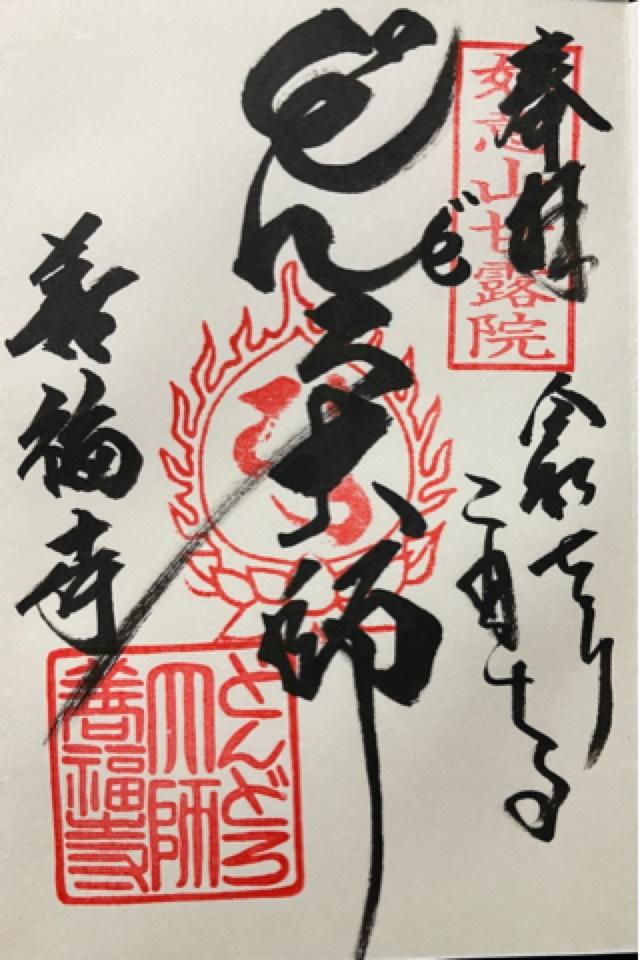 奉拝
如意山甘露院
令和七年
二月十一日
どんどろ大師
善福寺
どんどろ
大師
善福寺